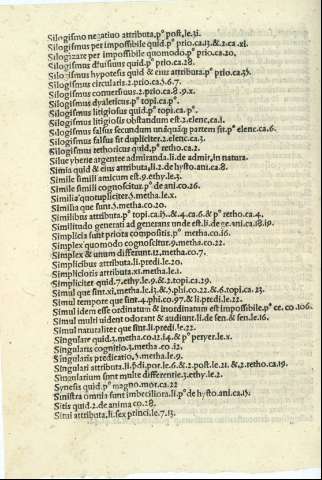 Silogismo negatiuo attributa.pº post.le.31.
Silogismus per impossibile quid.pº prio.ca.13.&.2.ca.xi.
Silogizare per impossibile quomodo.pº prio.ca.20.
Silogismus diuisiuus quid.pº prio.ca.28.
Silogismus hypotesis quid & eius attributa.pº prio.ca.35.
Silogismus circularis.2.prio.ca.5.6.7.
Silogismus conuersiuus.2.prio.ca.8.9.x.
Silogismus dyaleticus.pº topi.ca.pº.
Silogismus litigiosus quid.pº topi.ca.pº.
Silogismus litigiosus obstandum est.2.elenc.ca.1.
Silogismus falsus secundum unāquāq partem sit.pº elenc.ca.6.
Silogismus falsus sit dupliciter.2.elenc.ca.3.
Silogismus rethoricus quid.pº retho.ca.2.
Silue yberie argentee admiranda.li.de admir,in natura.
Simia quid & eius attributa,li.2.de hysto.ani.ca.8.
Simile simili amicum est.9.ethy.le.3.
Simile simili cognoscitur.pº de ani.co.26.
Similia quotupliciter.5.metha.le.x.
Similia que sunt.5.metha.co.20.
Similibus attributa.pº topi.ca.15..&.4.ca.6.&.pº retho.ca.4.
Similitudo generati ad generans unde est.li.de ge.ani.ca.18.19.
Simplicia sunt priora compositis.pº metha.co.16.
Simplex quomodo cognoscitur.9.metha.co.22.
Simplex & unum differunt.12.metha.co.7.
Simplicibus attributa.li.predi.le.20.
Simpliciotis attributa.xi.metha.le.1.
Simpliciter quid.7.ethy.le.9.&.2.topi.ca.29.
Simul que sint.xi.metha.le.13.&.5.phi.co.22.&.6.topi.ca.23.
Simul tempore que sint.4.phi.co.97.&.li.predi.le.22.
Simul idem esse ordinatum & inordinatum est impossibile.pº ce.co.106.
Simul multi uident odorant & audiunt.li.de sen.& sen.le.16.
Simul naturaliter que sint.li.predi.le.22.
Singulare quid.3.metha.co.12.14.& pº peryer.le.x.
Singularis cognitio.3.metha.co.12.
Singularis predicatio.5.metha.le.9.
Singulari attributa.li.p̄di.por.le.6.&.2.post.le.21.&.2.retho.ca.19.
Singularium sunt multe differentie.3.ethy.le.2.
Synesis quid.pº magno.mor.ca.22
Sinistra omnia sunt imbeciliora.li.pº de hysto.ani.ca.15.
Sitis quid.2.de anima co.28.
Situi attributa.li.sex princi.le.7.13.